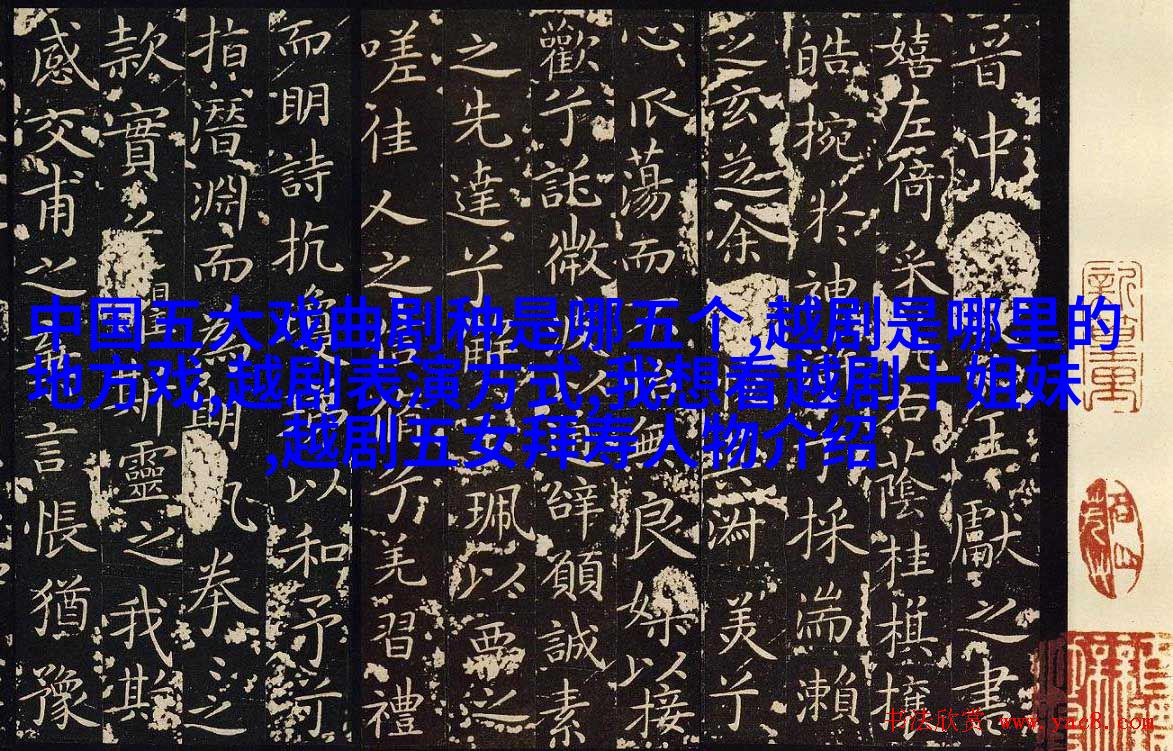 中国五大戏曲剧种是哪五个,越剧是哪里的
地方戏,越剧表演方式,我想看越剧十姐妹
,越剧五女拜寿人物介绍
晋中王獻之書
嬉左倚采右蔭桂旗攘
皓捥於神兮採湍瀨
之玄芝余淑美兮
心蕩而無良媒以接
歡兮託微波辭願誠素
之先達兮解珮以要之
嗟佳人之信脩兮羌習禮
而明詩抗以和予兮
指潛淵而為期拳之
款實兮懼斯靈之我欺
感交甫之棄言悵猶豫
书法欣赏 www.yac8.com